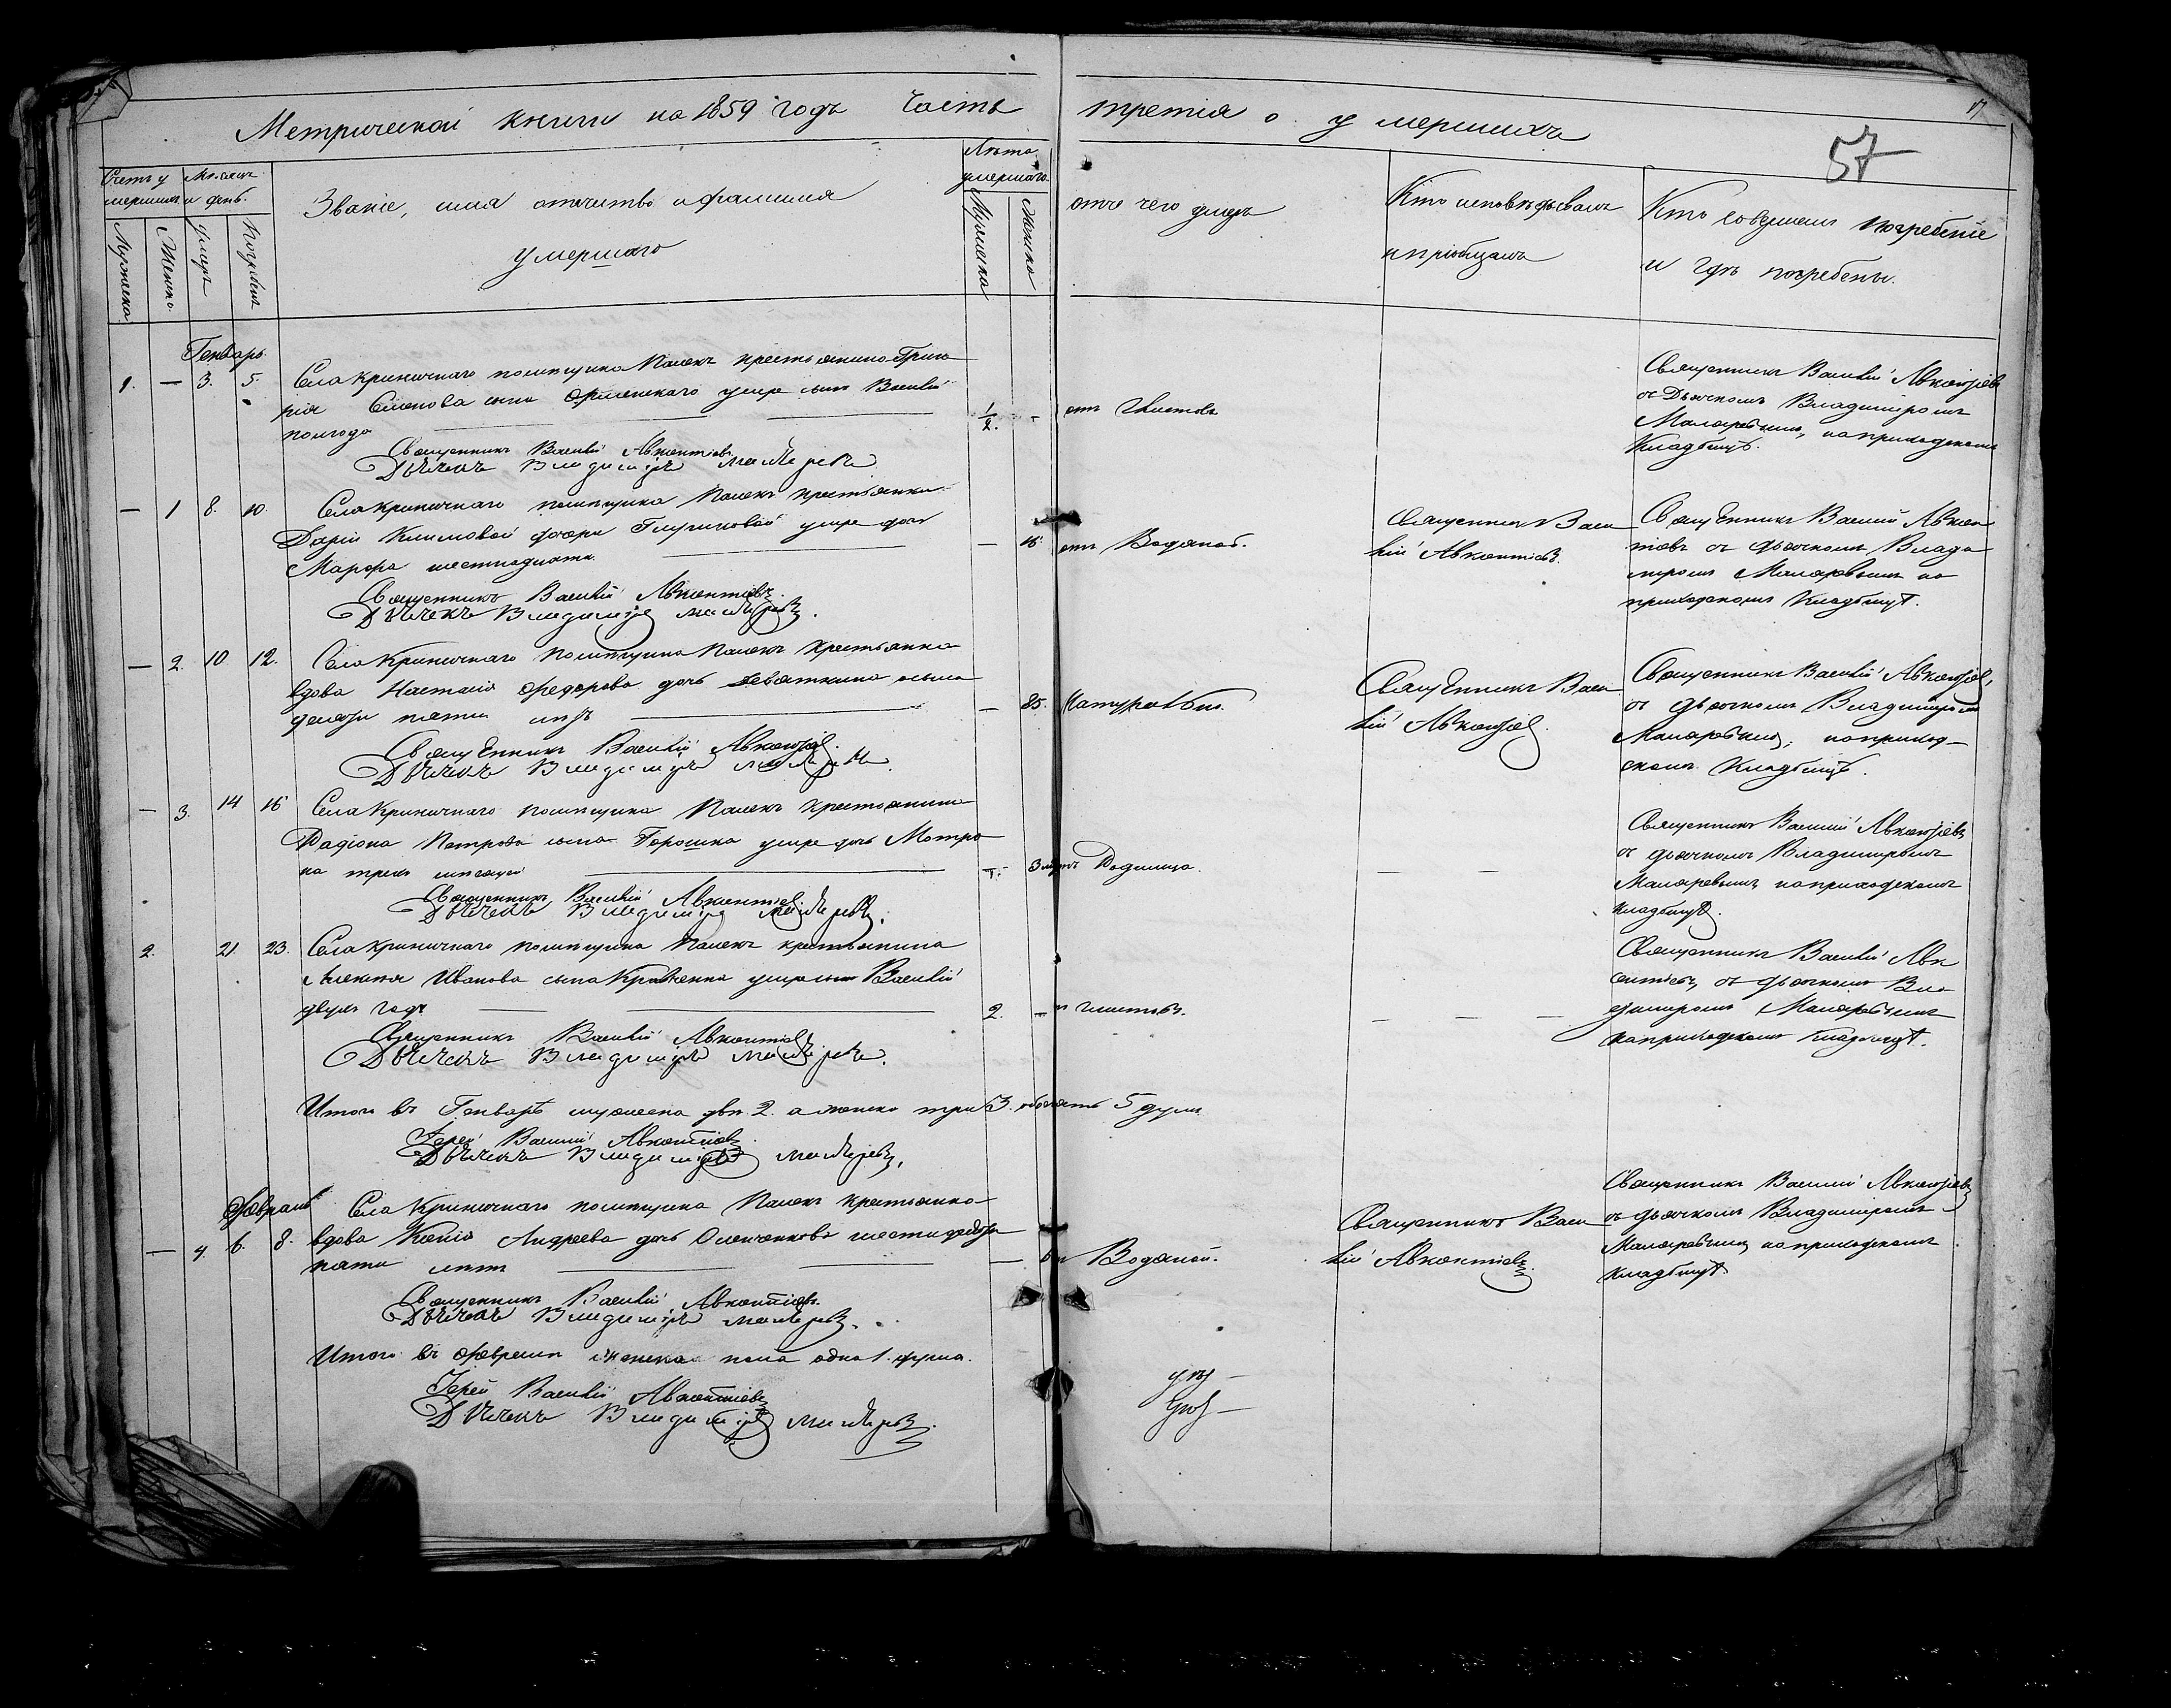 Метрической книги на 1859 годъ Часть третія о умершихъ
17
57
Счетъ умершихъ
Мужеска
Женска
Мѣсяцъ и день
умеръ
погребенъ
Званіе, имя отечитво и фамилія
умершаго
Лѣта умершаго
Мужеска
Женска
отъ чего умеръ
Кто исповѣдывалъ
и пріобщалъ
Кто совершалъ погребеніе
и гдѣ погребены.
Генварь
1. — 3. 5. Села Криничнаго помѣщика крестьянина Григо
рія Семенова сына умре сынъ Василій
полгода 1/2. - отъ глистовъ
Священникъ Василій Авксентіевъ
Дьячекъ Владиміръ Маляревъ
Священникъ Василій Авксентіевъ
съ Дьячкомъ Владиміромъ
Маляревымъ, на приходскомъ
Кладбищѣ.
— 1 8. 10. Села Криничнаго помѣщика крестьянки
Даріи Климовой дочери умре дочь
Марфа шестнадцати — 16. отъ Водяной.
Священникъ Василій Авксентіевъ.
Дьячекъ Владиміръ Маляревъ.
Священникъ Васи
лій Авксентіевъ.
Священникъ Василій Авксен
тіевъ съ дьячкомъ Влади
міромъ Маляревымъ на
приходскомъ Кладбищѣ.
— 2. 10 12. Села Криничнаго помѣщика крестьянка
вдова Настасія Федорова дочь осьми
десяти пяти лѣтъ — 85. Натурально.
Священникъ Василій Авксентіевъ.
Дьячекъ Владиміръ Маляревъ.
Священникъ Васи
лій Авксентіевъ.
Священникъ Василій Авксентіевъ,
съ дьячкомъ Владиміромъ
Маляревымъ, на приход-
скомъ Кладбищѣ.
— 3. 14 16 Села Криничнаго помѣщика крестьянина
Радіона Петрова сына Горошка умре дочь Матро
на трехъ мѣсяцей — 3 м. отъ Родимца.
Священникъ Василій Авксентіевъ
Дьячекъ Владиміръ Маляревъ.
— —
Священникъ Василій Авксентіевъ
съ дьячкомъ Владиміромъ
Маляревымъ на приходскомъ
кладбищѣ.
2. 21. 23. Села Криничнаго помѣщика крестьянина
Алексѣя Иванова сына Кравченка умре сынъ Василій
двухъ годъ 2. — отъ глистовъ.
Священникъ Василій Авксентіевъ
Дьячекъ Владиміръ Маляревъ.
— — —
Священникъ Василій Авк
сентіевъ, съ дьячкомъ Вла
диміромъ Маляревымъ
на приходскомъ кладбищѣ.
Итого въ Генварѣ мужеска два 2. а женска три 3. обоего 5 душъ
Іерей Василій Авксентіевъ.
Дьячекъ Владиміръ Маляревъ,
Февраль Села Криничнаго помѣщика крестьянка
— 4. 6. 8. вдова Ксенія Андреева дочь шестидесяти
пяти лѣтъ — Водяной.
Священникъ Василій Авксентіевъ.
Дьячекъ Владиміръ Маляревъ.
Священникъ Васи
лій Авксентіевъ.
Священникъ Василій Авксентіевъ
съ дьячкомъ Владиміромъ
Маляревымъ на приходскомъ
кладбищѣ.
Итого въ Февралѣ женска пола одна 1. душа.
Іерей Василій Авксентіевъ
Дьячекъ Владиміръ Маляревъ.